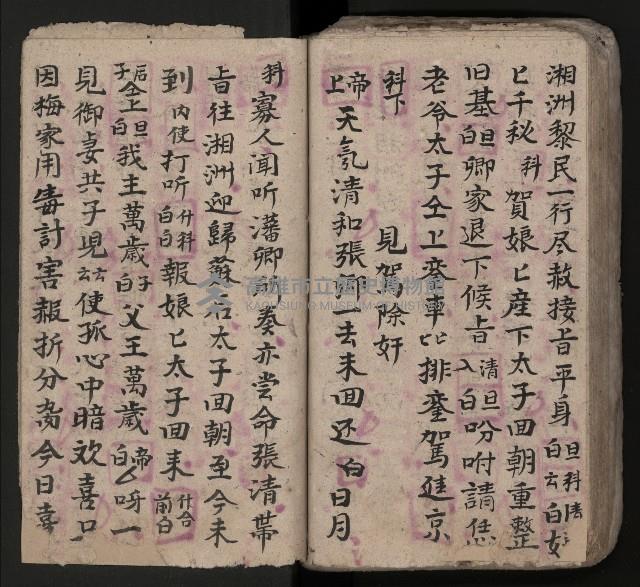 湘洲黎民一行尽赦接旨平身白旦科云白
匕千秘科賀娘匕産下太子回朝重整
旧基白旦卿家退下候旨入白清旦吩咐請
老爷太子仝上麥車比排銮駕進京
科下見駕除奸
上帝天氣清和張卿一去未回还白日月
科寡人闻听潘卿奏亦尝命張清帶
旨往湘洲迎歸蘇后太子回朝至今未
到内使打听白什科白報娘匕太子回来什合前白
后子仝上旦白我主萬歲子白父王萬歲帝白呀一
見御妻共子児云云使孤心中暗欢喜口一
因梅家用毒計害報折分离今日喜
高雄市立歷史博物館
KAOHSIUNG MUSEUM OF HISTORY